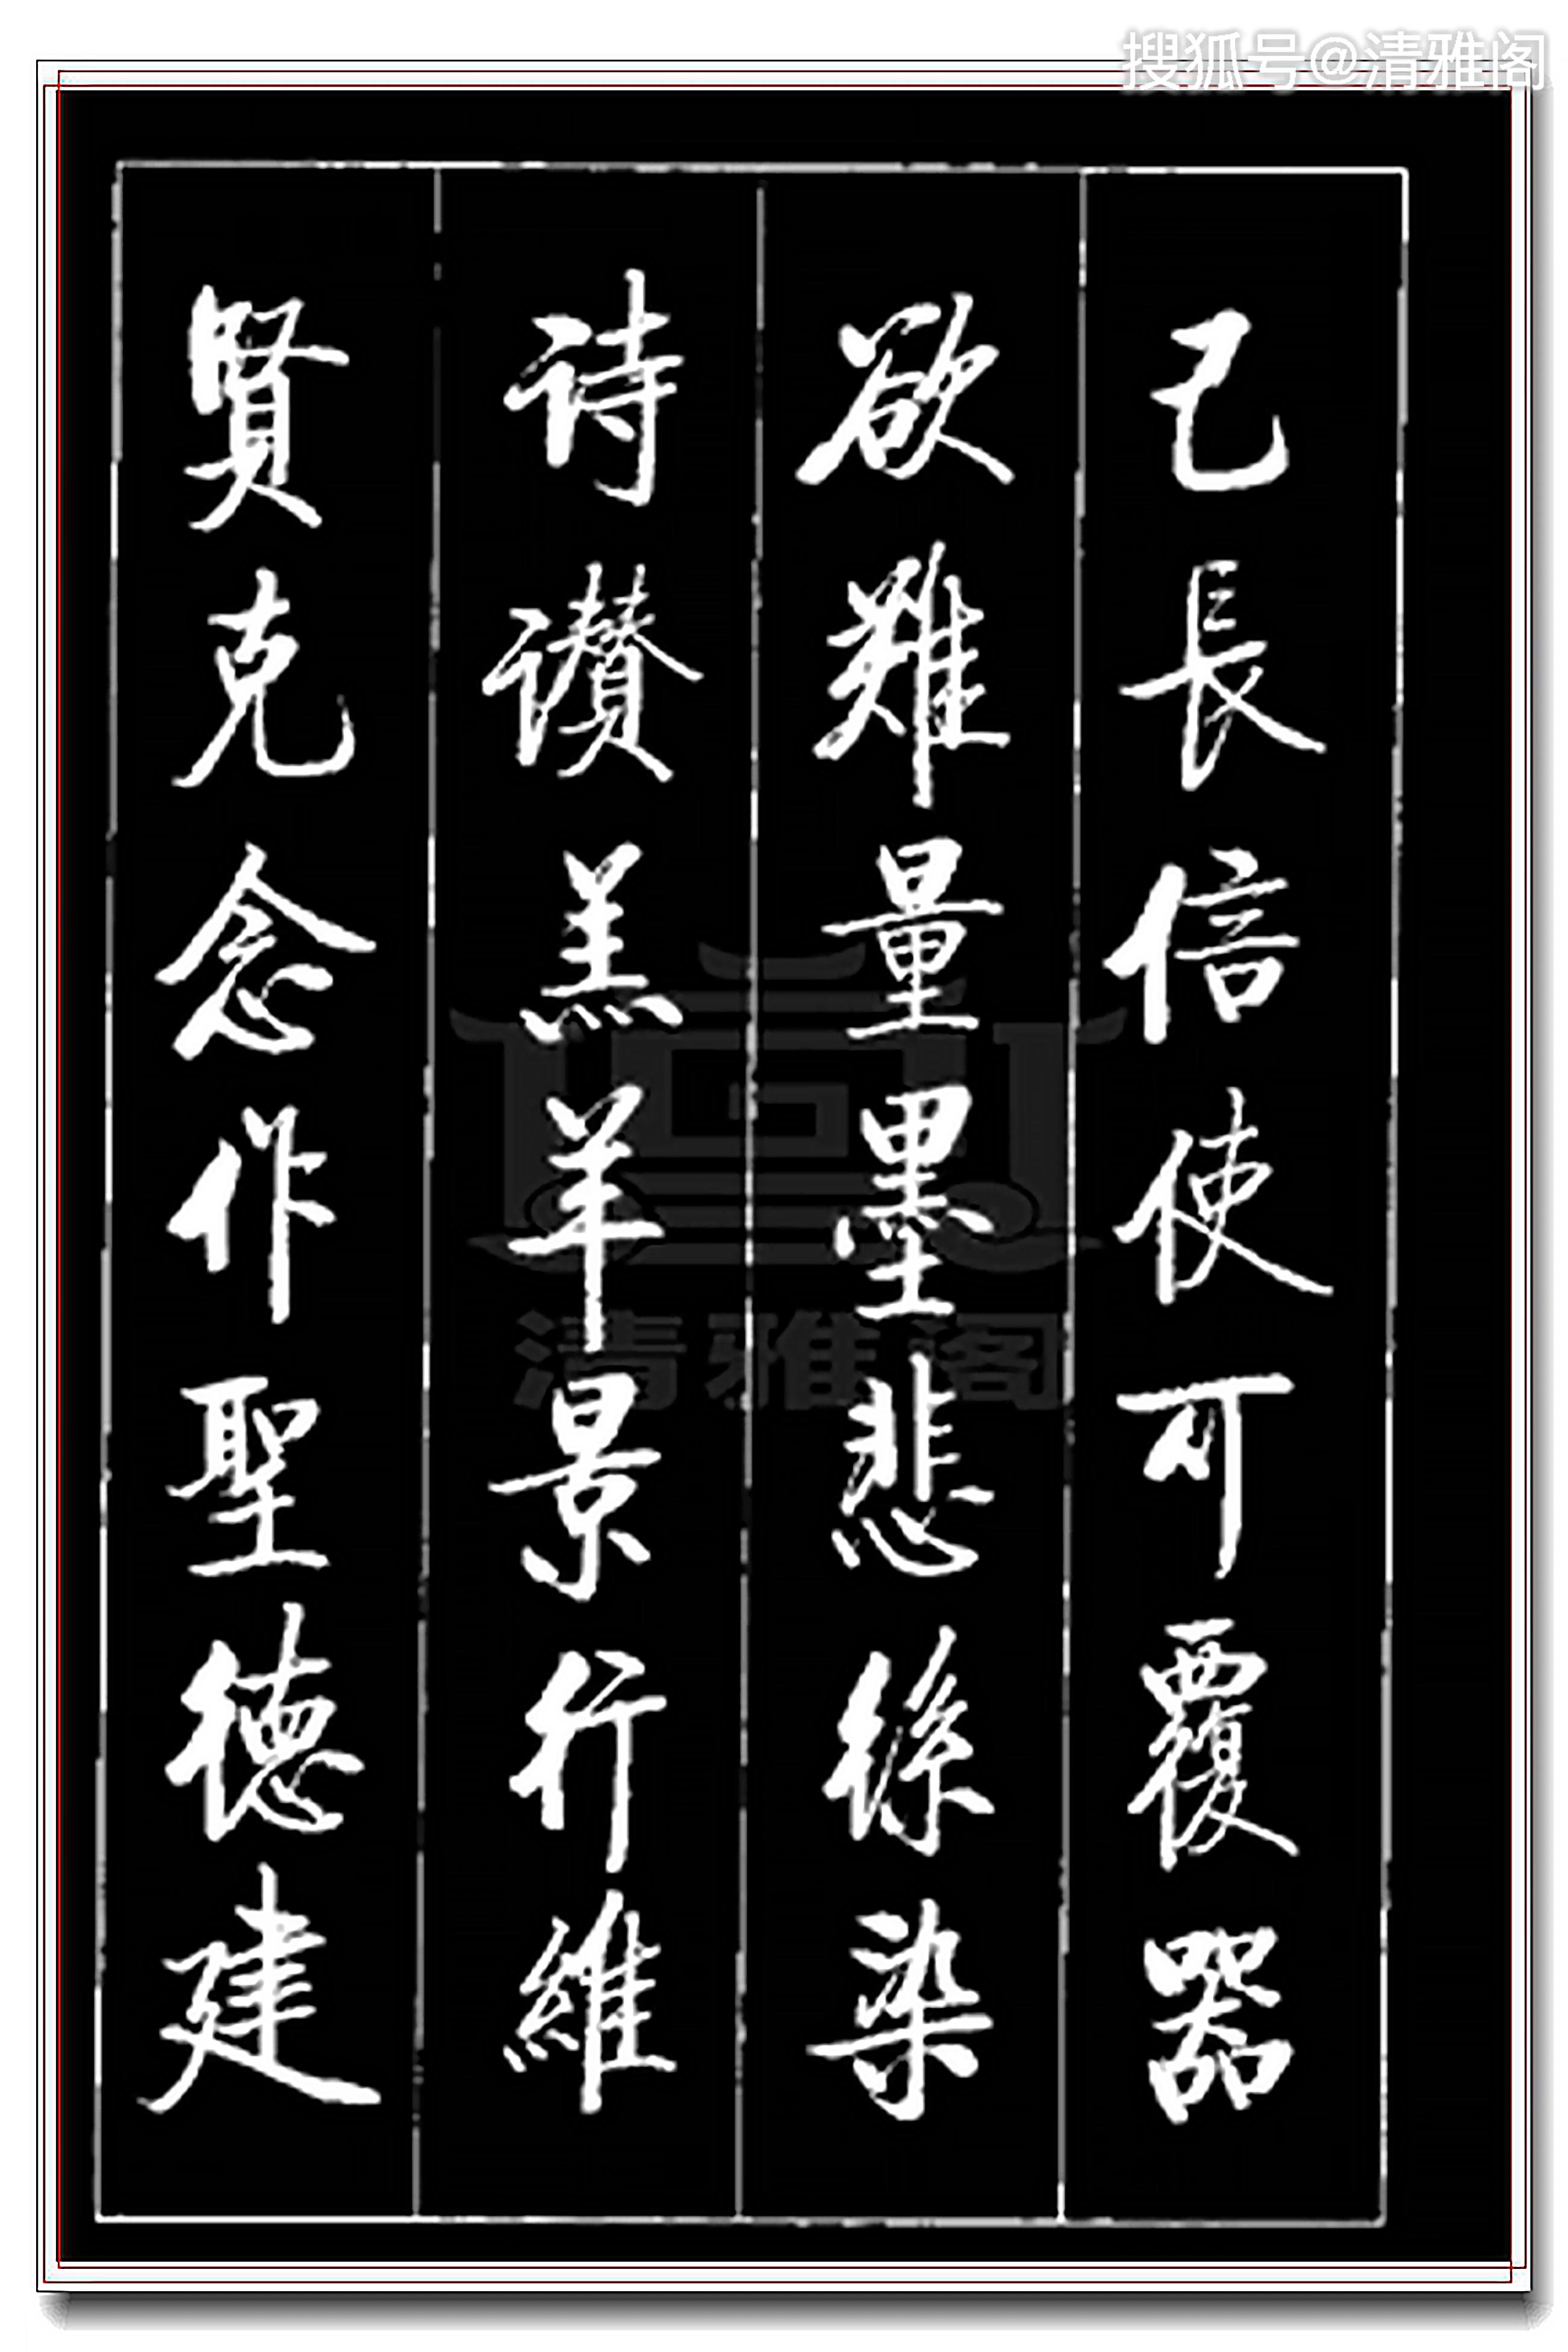 搜狐号@清雅阁
己長信使可覆器
欲難量墨悲絲染
詩讚羔羊景行維
賢克念作聖德建
清雅阁